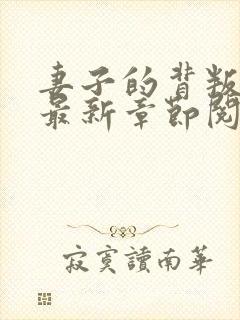 妻子的背叛
最新章節閱
寂寞讀南華